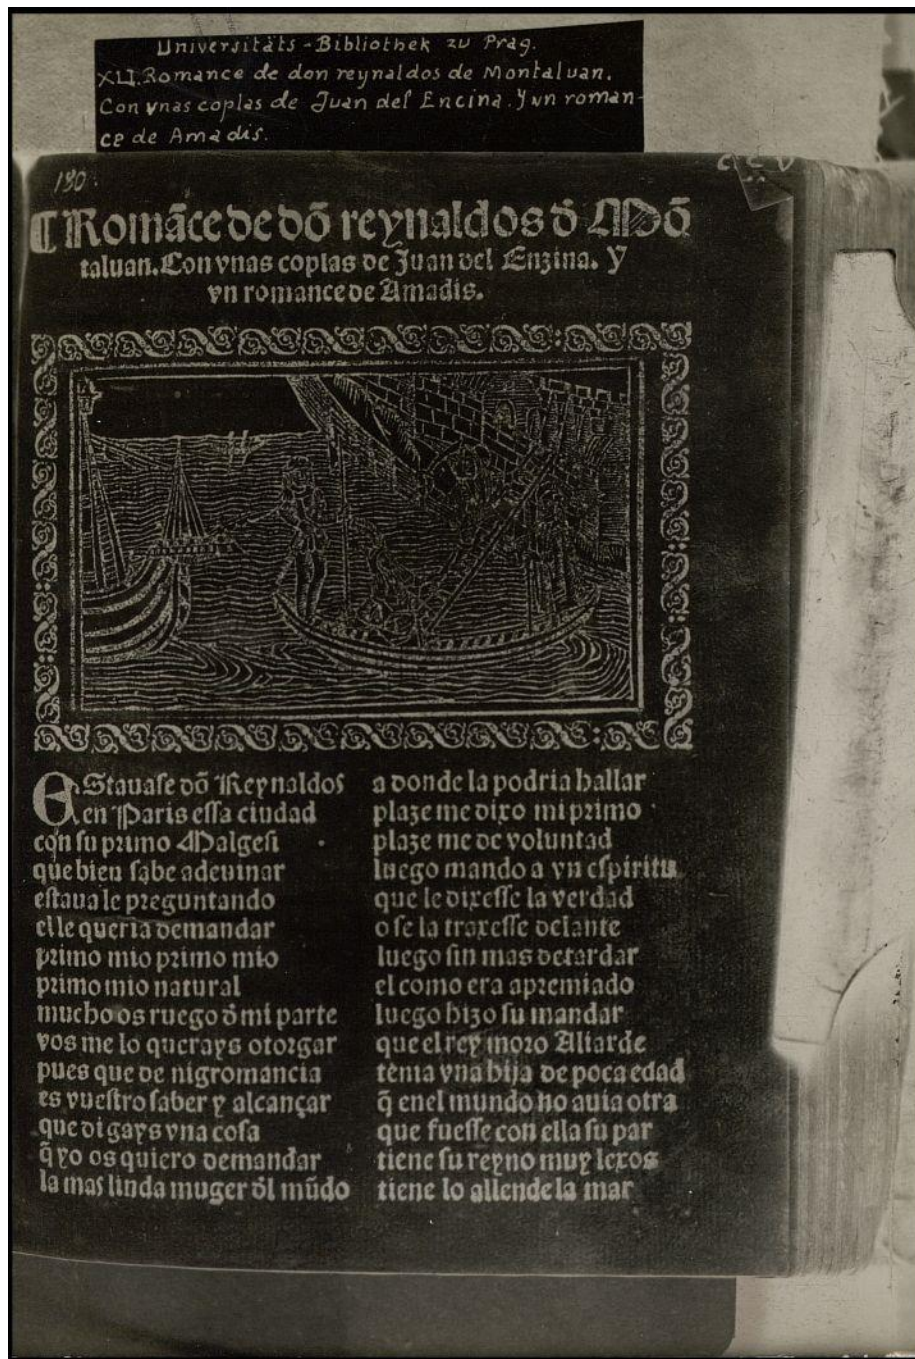 Universitäts-Bibliothek zu Prag.
XLI. Romance de don reynaldos de Montaluan.
Con ynas coplas de Juan del Encina. Y vn roman-
ce de Amadis.
190.
¶ Romāce de dō reynaldos đ Mō
taluan. Con vnas coplas de Juan del Enzina. Y
vn romance de Amadis.
EStauase dō Reynaldos
en Paris essa ciudad
con su primo Malgesi
que bien sabe adeuinar
estauale preguntando
elle queria demandar
primo mio primo mio
primo mio natural
mucho os ruego đ mi parte
vos me lo querays otorgar
pues que de nigromancia
es vuestro saber y alcançar
que digays vna cosa
q̄ yo os quiero demandar
la mas linda muger đl mūdo
a donde la podria hallar
plaze me dixo mi primo
plaze me de voluntad
luego mando a vn espiritu
que le dixesse la verdad
o se la traxesse delante
luego sin mas detardar
el como era apremiado
luego hizo su mandar
que el rey moro Aliarde
tenia vna hija de poca edad
q̄ enel mundo no auia otra
que fuesse con ella su par
tiene su reyno muy lexos
tiene lo allende la mar